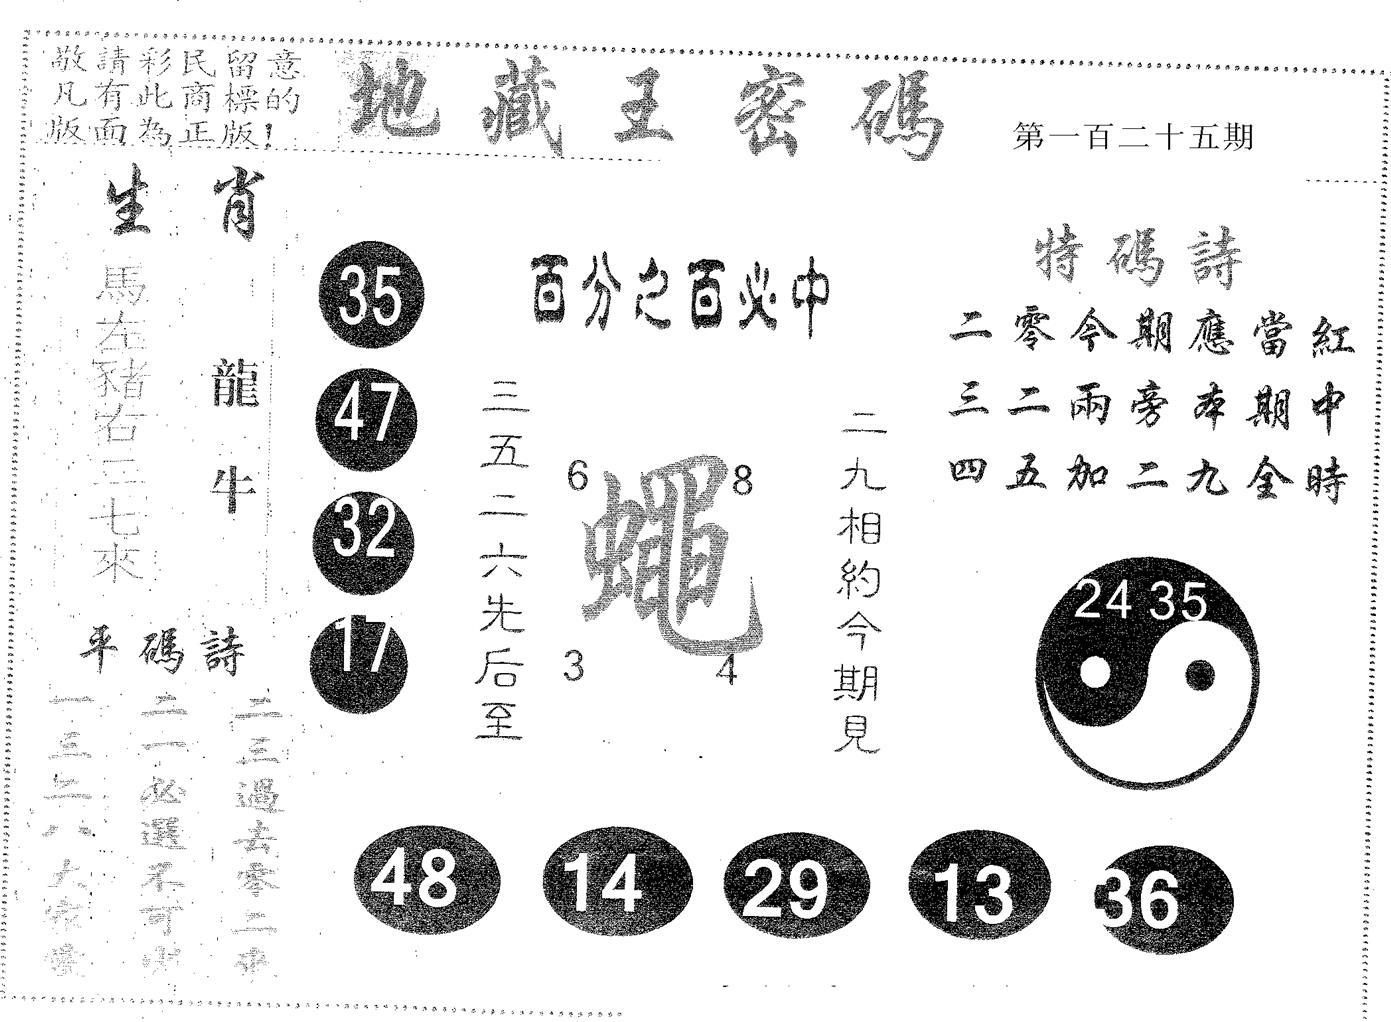 敬請彩民留意
凡有此商標的
版面為正版!
地藏王密碼
第一百二十五期
生肖
馬左豬右三七來
龍牛
35
47
32
17
百分之百必中
三五二六先后至
6
8
蠅
3
4
二九相約今期見
特碼詩
二零今期應當紅
三二兩旁本期中
四五加二九全時
24 35
平碼詩
一三二八大
二一必選不可少
二三過去零二來
48
14
29
13
36